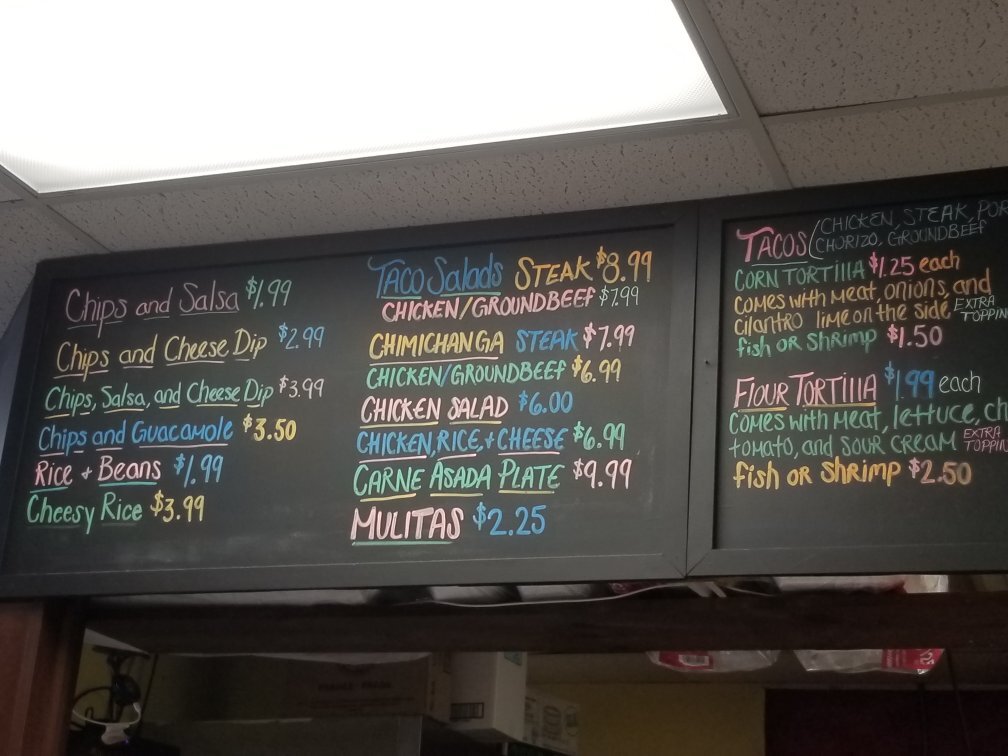 Chips and Salsa $1.99
Chips and Cheese Dip $2.99
Chips, Salsa, and Cheese Dip $3.99
Chips and Guacamole $3.50
Rice + Beans $1.99
Cheesy Rice $3.99
Taco Salads STEAK $8.99
CHICKEN/GROUNDBEEF $7.99
CHIMICHANGA STEAK $7.99
CHICKEN/GROUNDBEEF $6.99
CHICKEN SALAD $6.00
CHICKEN, RICE, + CHEESE $6.99
CARNE ASADA PLATE $9.99
MULITAS $2.25
TACOS (CHICKEN, STEAK, POR
CHORIZO, GROUNDBEEF
CORN TORTILLA $1.25 each
comes with meat, onions, and
cilantro lime on the side EXTRA
TOPPIN
fish or shrimp $1.50
FLOUR TORTILLA $1.99 each
comes with meat, lettuce, ch
tomato, and sour cream EXTRA
TOPPIN
fish or shrimp $2.50